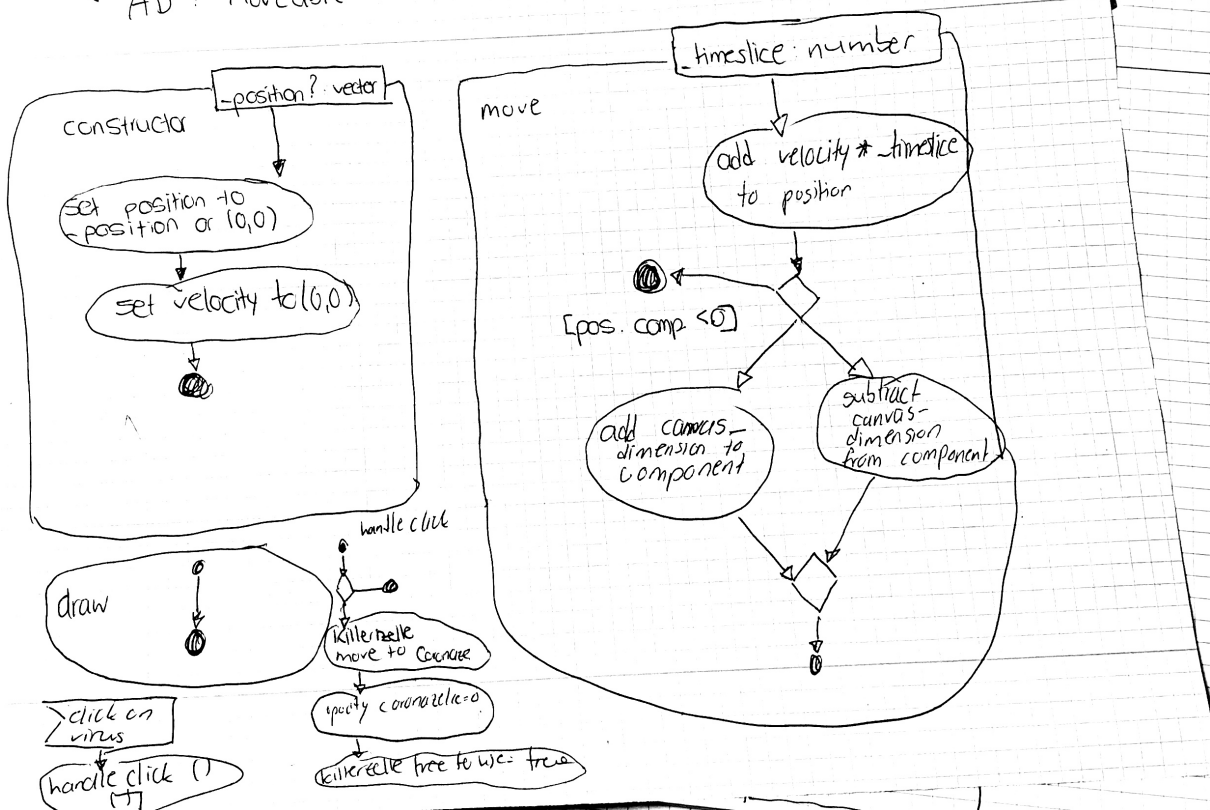 AD: Moveable
_position?: vector
constructor
set position to
_position or (0,0)
set velocity to (0,0)
_timeslice: number
move
add velocity * _timeslice
to position
[pos. comp. <0]
add canvas_
dimension to
component
subtract
canvas-
dimension
from component
draw
handle click
Killerzelle
move to Coronaze
opacity coronazelle=0
killerzelle free to use= true
click on
virus
handle click ()